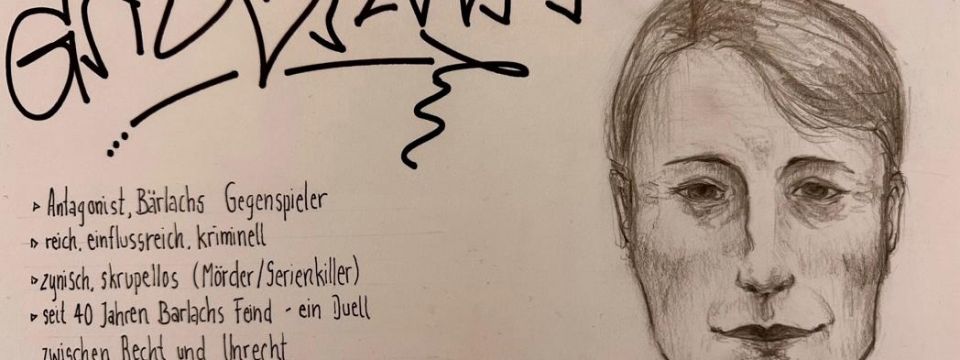 ▹ Antagonist, Bärlachs Gegenspieler
▹ reich, einflussreich, kriminell
▹ zynisch, skrupellos (Mörder/Serienkiller)
▹ seit 40 Jahren Barlachs Feind - ein Duell
zwischen Recht und Unrecht